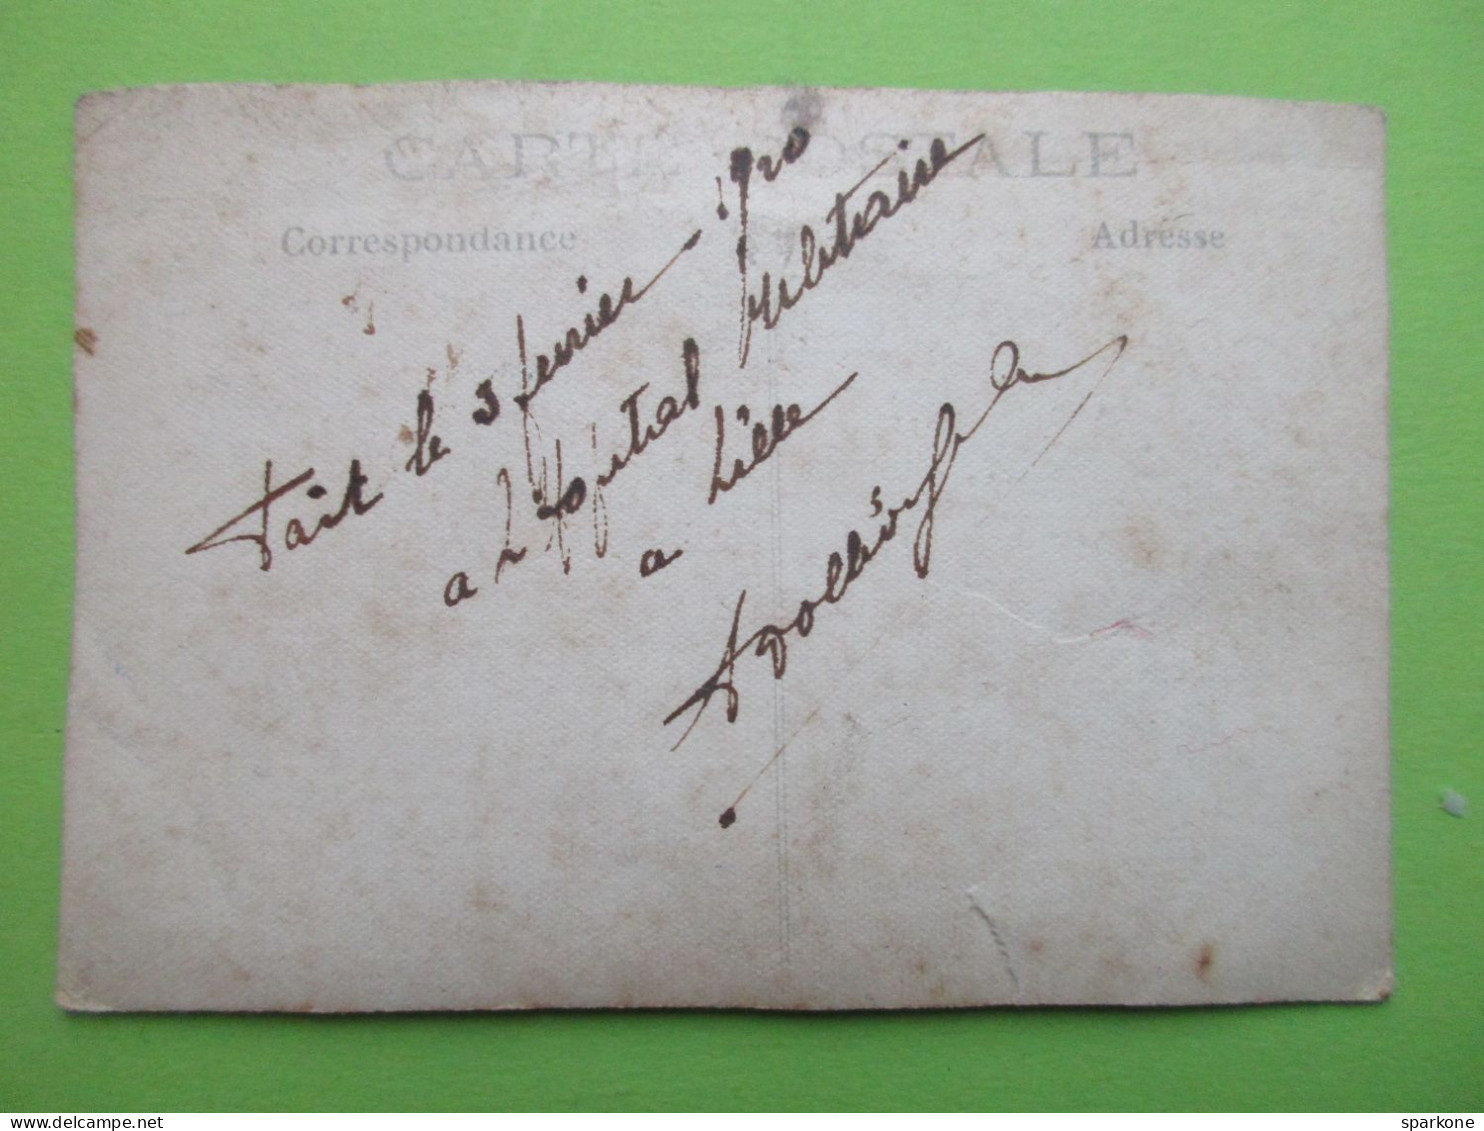 CARTE POSTALE
Correspondance
Adresse
Fait le 3 fevrier 1920
a l Hopital Militaire
a Lille
© sparkone - www.delcampe.net